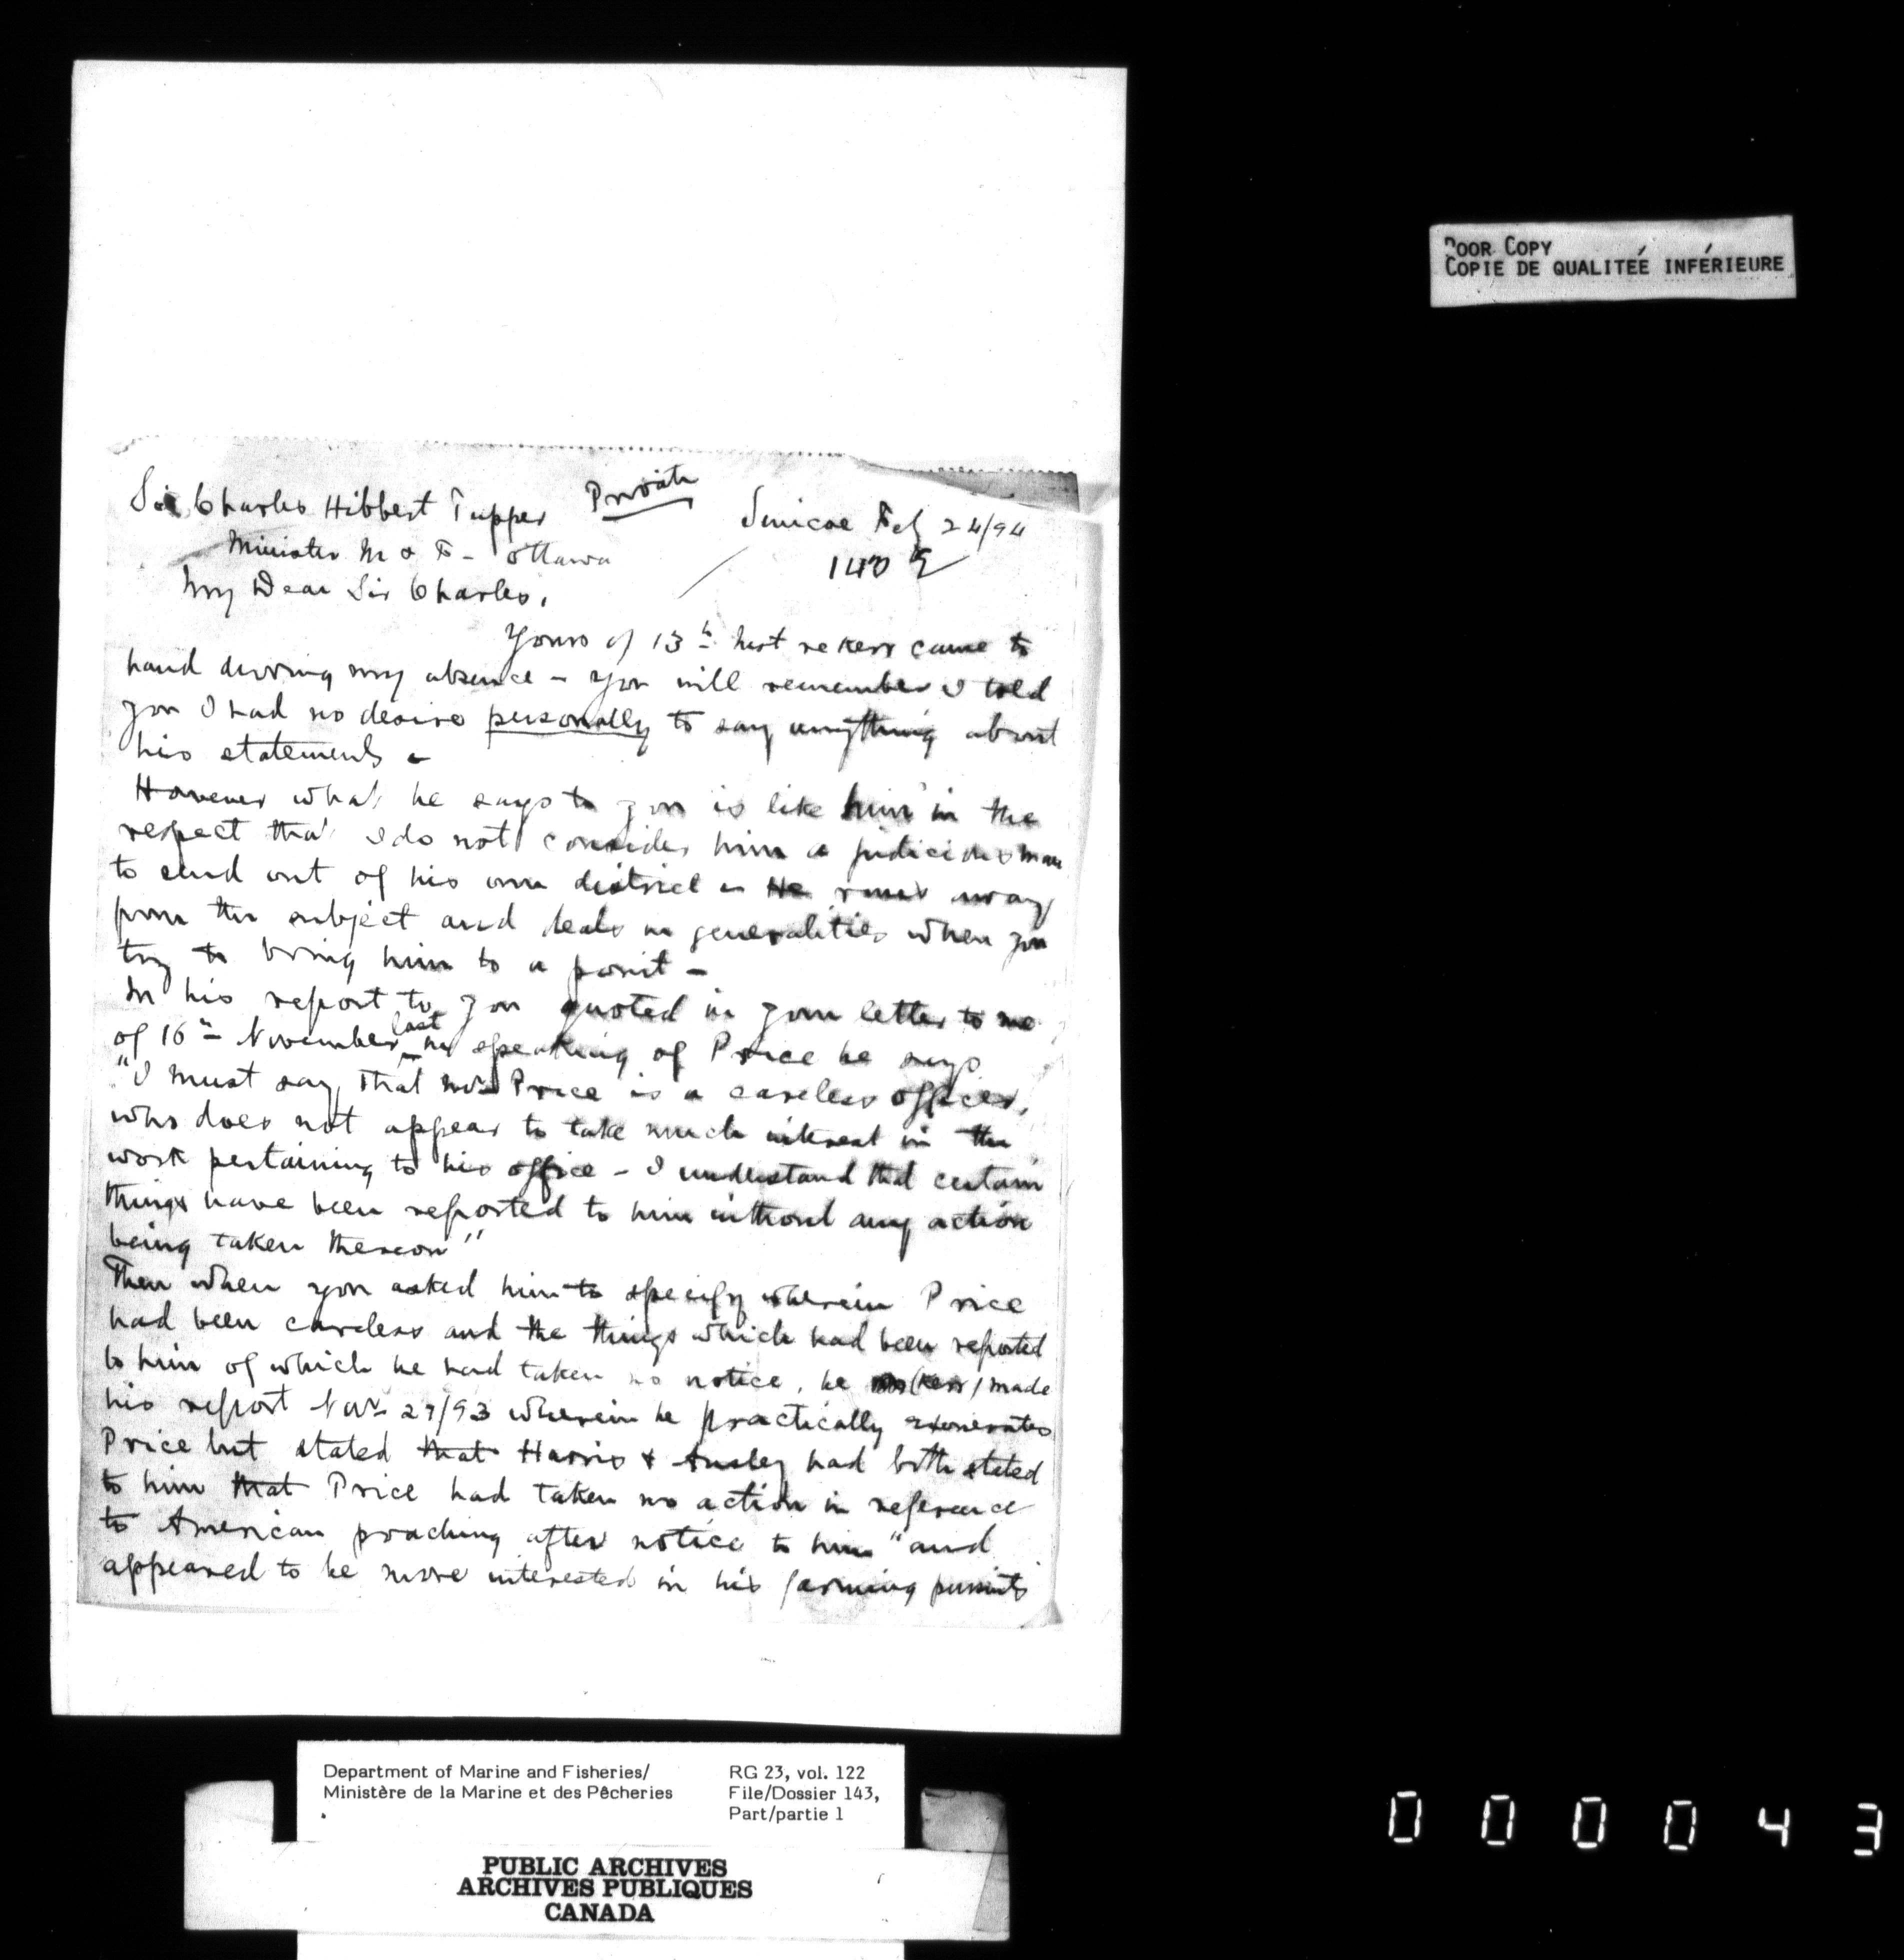 Poor Copy
Copie de qualiteé inférieure
Private
Sir Charles Hibbert Tupper
Simcoe Feb 24/94
Minister M & F - Ottawa
143
My Dear Sir Charles,
Yours of 13th inst re Kerr came to
hand during my absence - You will remember I told
you I had no desire personally to say anything about
his statements -
However what he says to you is like him in the
respect that I do not consider him a judicious man
to send out of his own district - He runs away
from the subject and deals in generalities when you
try to bring him to a point -
In his report to you quoted in your letter to me
of 16th November last in speaking of Price he says
"I must say, that Mr Price is a careless officer,
who does not appear to take much interest in the
work pertaining to his office - I understand that certain
things have been reported to him without any action
being taken thereon"
Then when you asked him to specify wherein Price
had been careless and the things which had been reported
to him of which he had taken no notice, he (Kerr) made
his report Nov 27/93 wherein he practically exonerates
Price but stated that Harris & Ansley had both stated
to him that Price had taken no action in reference
to American poaching after notice to him "and
appeared to be more interested in his farming pursuits
Department of Marine and Fisheries/
Ministère de la Marine et des Pêcheries
RG 23, vol. 122
File/Dossier 143,
Part/partie 1
PUBLIC ARCHIVES
ARCHIVES PUBLIQUES
CANADA
000043